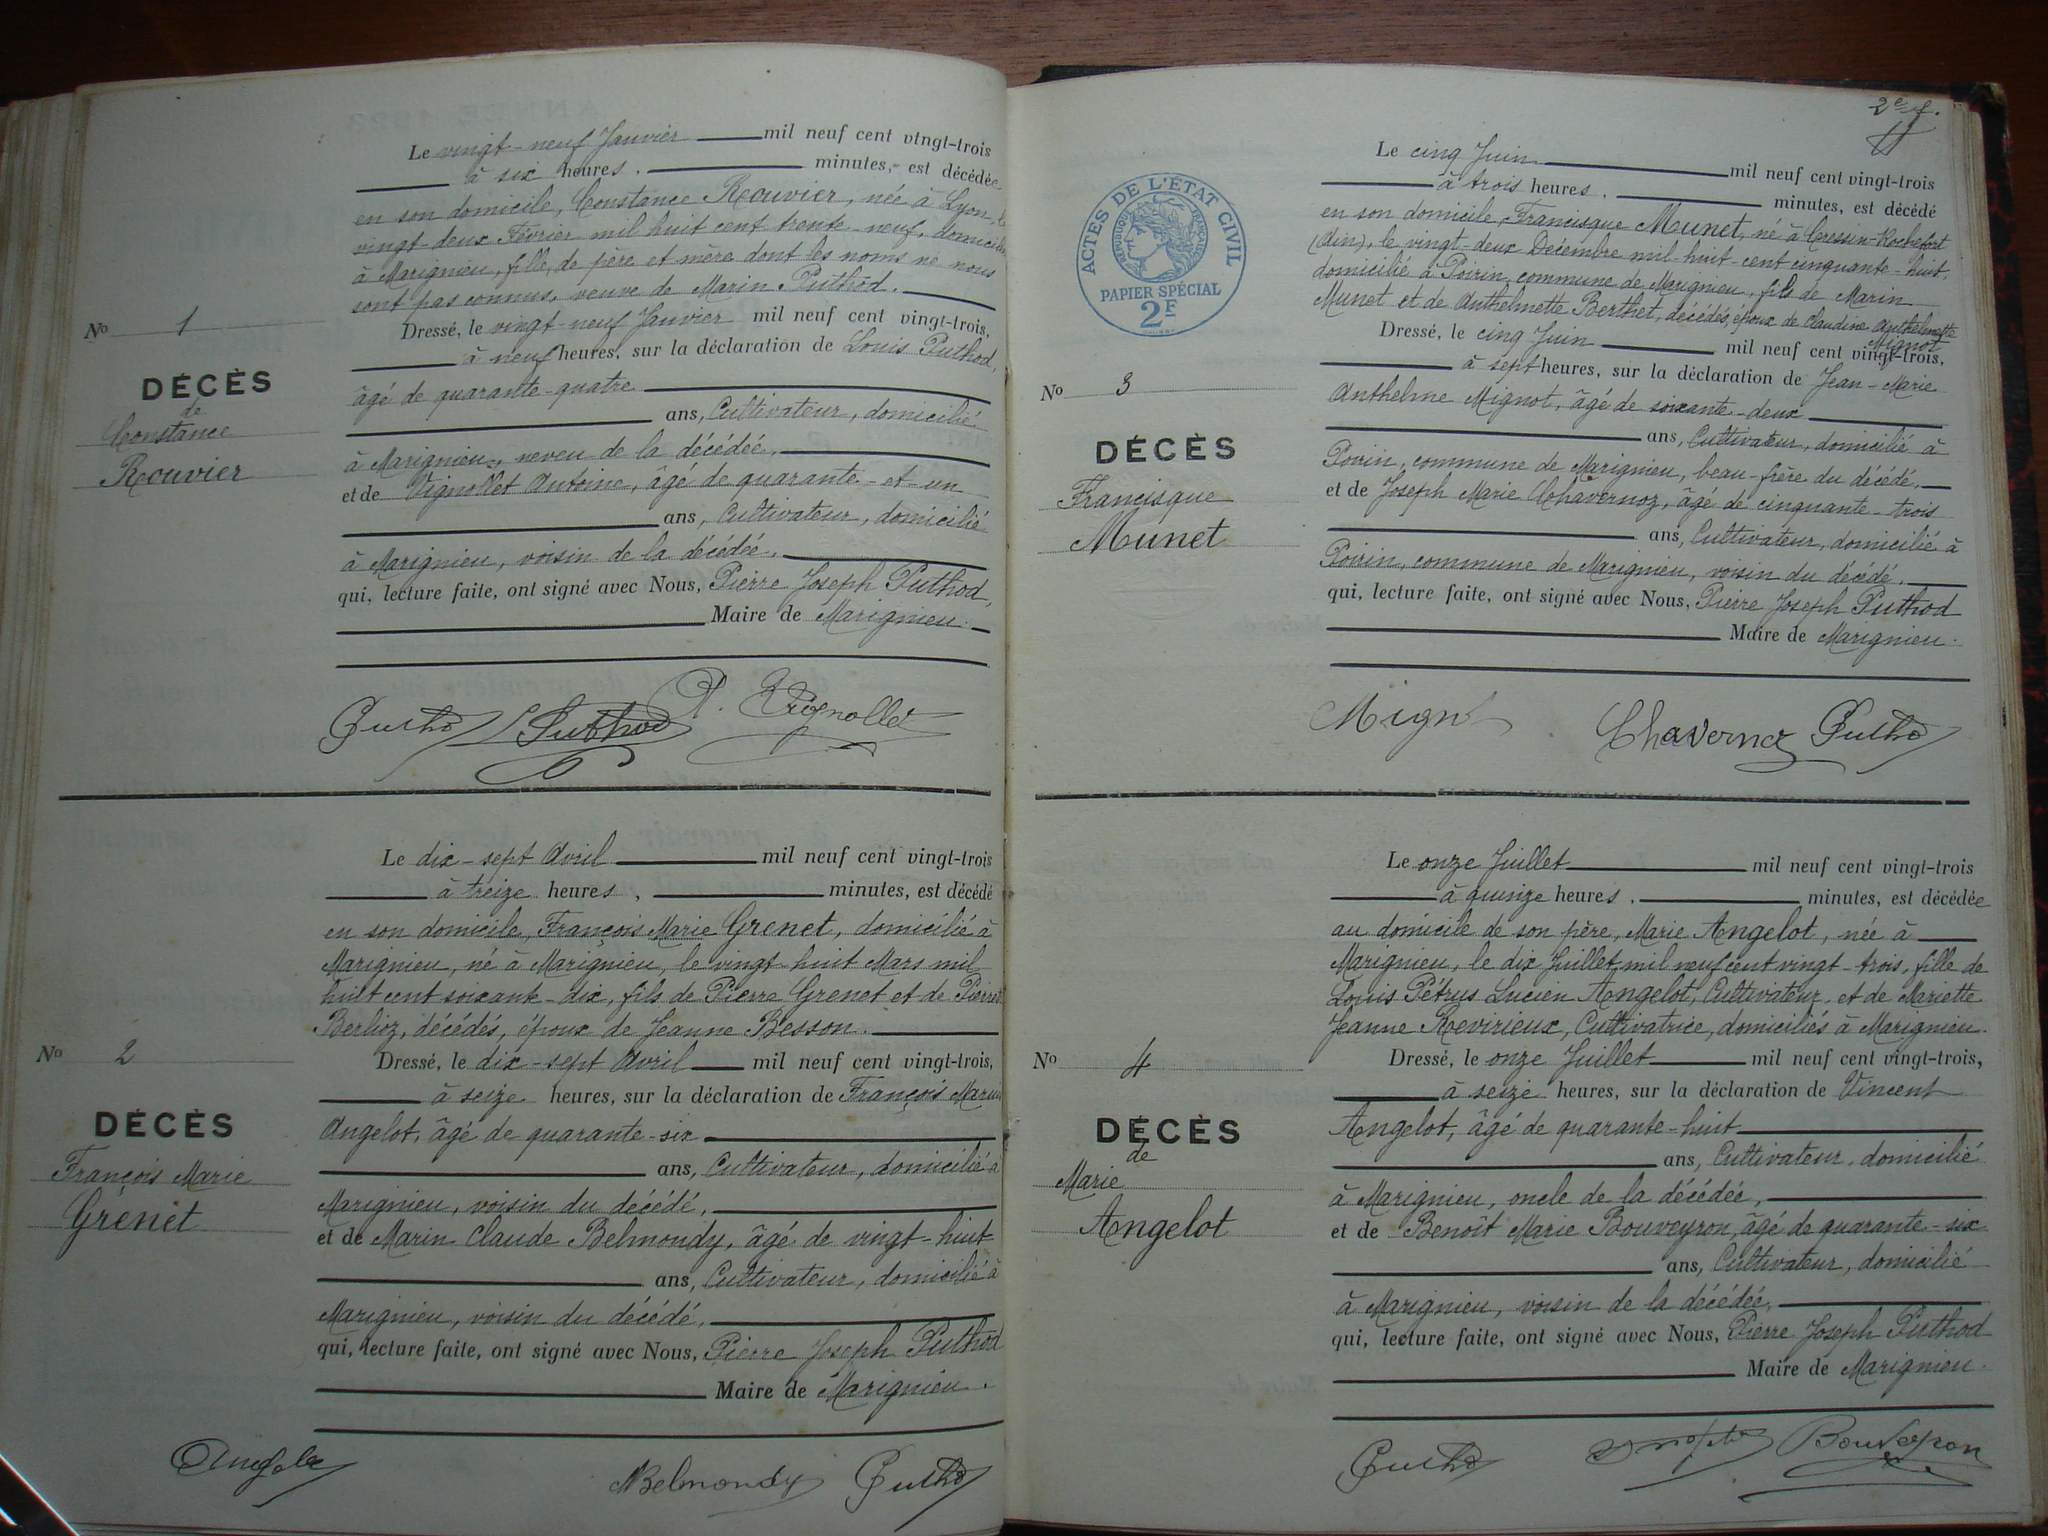 Le vingt-neuf Janvier mil neuf cent vingt-trois
à six heures. minutes, est décédée
en son domicile, Constance Rouvier, née à Lyon, le
vingt-deux Février mil huit cent trente-neuf, domiciliée
à Marignieu, fille de père et mère dont les noms ne nous
sont pas connus, veuve de Marin Puthod.
Dressé, le vingt-neuf Janvier mil neuf cent vingt-trois,
à neuf heures, sur la déclaration de Louis Puthod,
âgé de quarante-quatre
ans, Cultivateur, domicilié
à Marignieu, neveu de la décédée,
et de Vignollet Antoine, âgé de quarante-et-un
ans, Cultivateur, domicilié
à Marignieu, voisin de la décédée,
qui, lecture faite, ont signé avec Nous, Pierre Joseph Puthod,
Maire de Marignieu.
No 1
DÉCÈS
de
Constance
Rouvier
Puthod L Puthod A. Vignollet
Le dix-sept Avril mil neuf cent vingt-trois
à treize heures, minutes, est décédé
en son domicile, François Marie Grenet, domicilié à
Marignieu, né à Marignieu, le vingt-huit Mars mil
huit cent soixante-dix, fils de Pierre Grenet et de Pierrette
Berlioz, décédés, époux de Jeanne Besson.
Dressé, le dix-sept Avril mil neuf cent vingt-trois,
à seize heures, sur la déclaration de François Marin
Angelot, âgé de quarante-six
ans, Cultivateur, domicilié à
Marignieu, voisin du décédé,
et de Marin Claude Belmondy, âgé de vingt-huit
ans, Cultivateur, domicilié à
Marignieu, voisin du décédé,
qui, lecture faite, ont signé avec Nous, Pierre Joseph Puthod
Maire de Marignieu.
No 2
DÉCÈS
François Marie
Grenet
Angelot Belmondy Puthod
2e f.
ACTES DE L'ÉTAT CIVIL
RÉPUBLIQUE FRANÇAISE
PAPIER SPÉCIAL
2F
Le cinq Juin mil neuf cent vingt-trois
à trois heures. minutes, est décédé
en son domicile, Francisque Munet, né à Cressin-Rochefort
(Ain), le vingt-deux Décembre mil-huit-cent cinquante-huit,
domicilié à Poirin, commune de Marignieu, fils de Marin
Munet et de Anthelmette Berthet, décédés, époux de Claudine Anthelmette
Mignot
Dressé, le cinq Juin mil neuf cent vingt-trois,
à sept heures, sur la déclaration de Jean-Marie
Anthelme Mignot, âgé de soixante-deux
ans, Cultivateur, domicilié à
Poirin, commune de Marignieu, beau-frère du décédé,
et de Joseph Marie Chavernoz, âgé de cinquante-trois
ans, Cultivateur, domicilié à
Poirin, commune de Marignieu, voisin du décédé,
qui, lecture faite, ont signé avec Nous, Pierre Joseph Puthod
Maire de Marignieu.
No 3
DÉCÈS
Francisque
Munet
Mignot Chavernoz Puthod
Le onze Juillet mil neuf cent vingt-trois
à quinze heures. minutes, est décédée
au domicile de son père, Marie Angelot, née à
Marignieu, le dix Juillet mil neuf cent vingt-trois, fille de
Louis Pétrus Lucien Angelot, Cultivateur, et de Mariette
Jeanne Revirieux, Cultivatrice, domiciliés à Marignieu.
Dressé, le onze Juillet mil neuf cent vingt-trois,
à seize heures, sur la déclaration de Vincent
Angelot, âgé de quarante-huit
ans, Cultivateur, domicilié
à Marignieu, oncle de la décédée,
et de Benoît Marie Bouveyron, âgé de quarante-six
ans, Cultivateur, domicilié
à Marignieu, voisin de la décédée,
qui, lecture faite, ont signé avec Nous, Pierre Joseph Puthod
Maire de Marignieu.
No 4
DÉCÈS
de
Marie
Angelot
Puthod Bouveyron